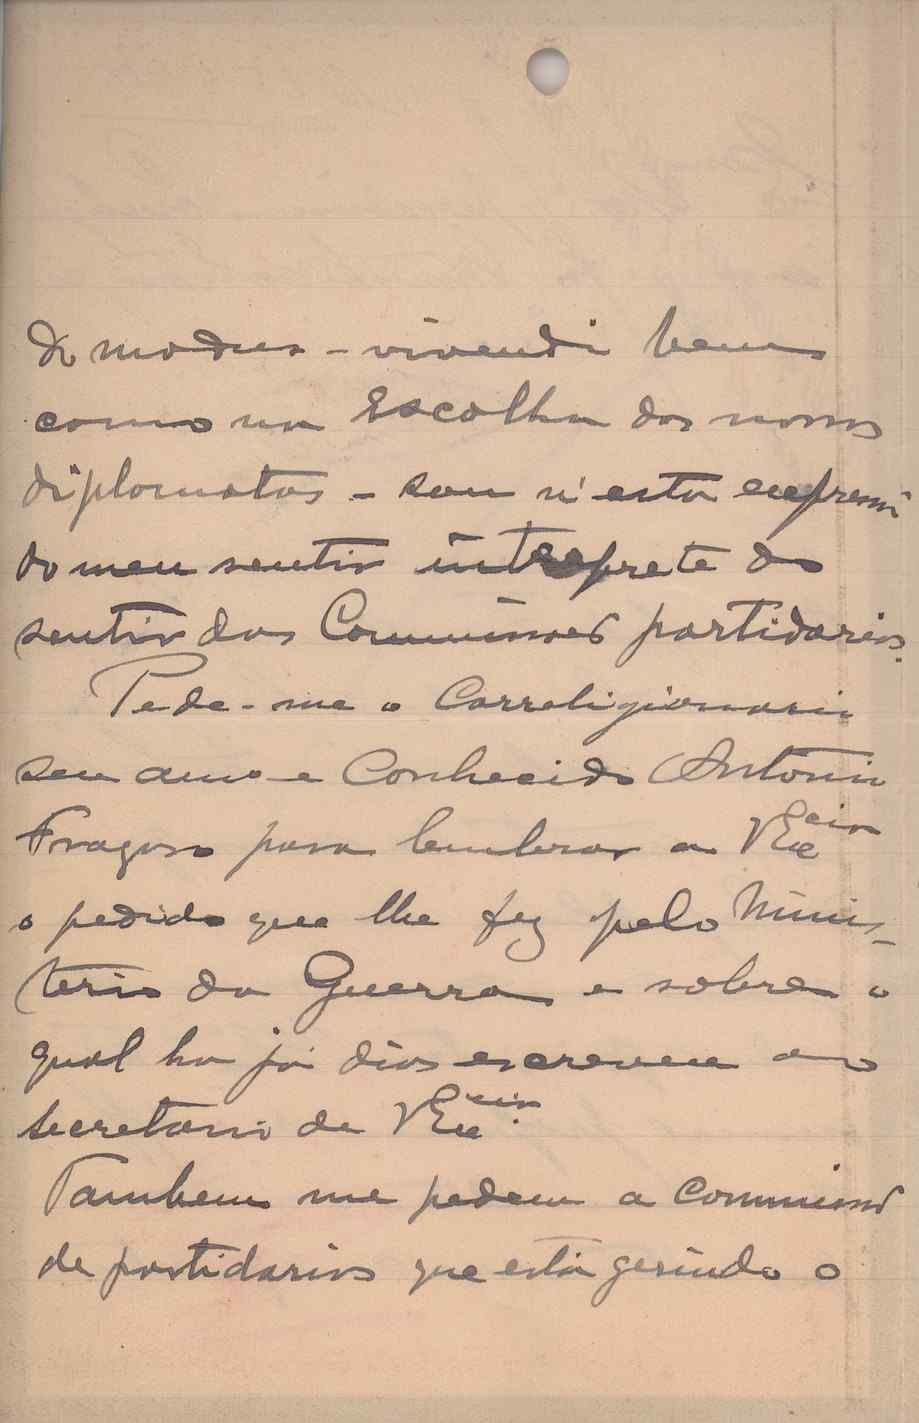 do modus-vivendi bem
como na Escolha dos nossos
diplomatas - sou n'esta expressã
do meu sentir interprete do
sentir das Commissões partidarias.
Pede-me o Correligionario
seu amo e Conhecido Antonio
Fragoso para lembrar a VExcia
o pedido que lhe fez pelo Minis-
terio da Guerra e sobre o
qual ha já dias escreveu ao
secretario de VExcia.
Tambem me pedem a commissão
de partidarios que está gerindo o